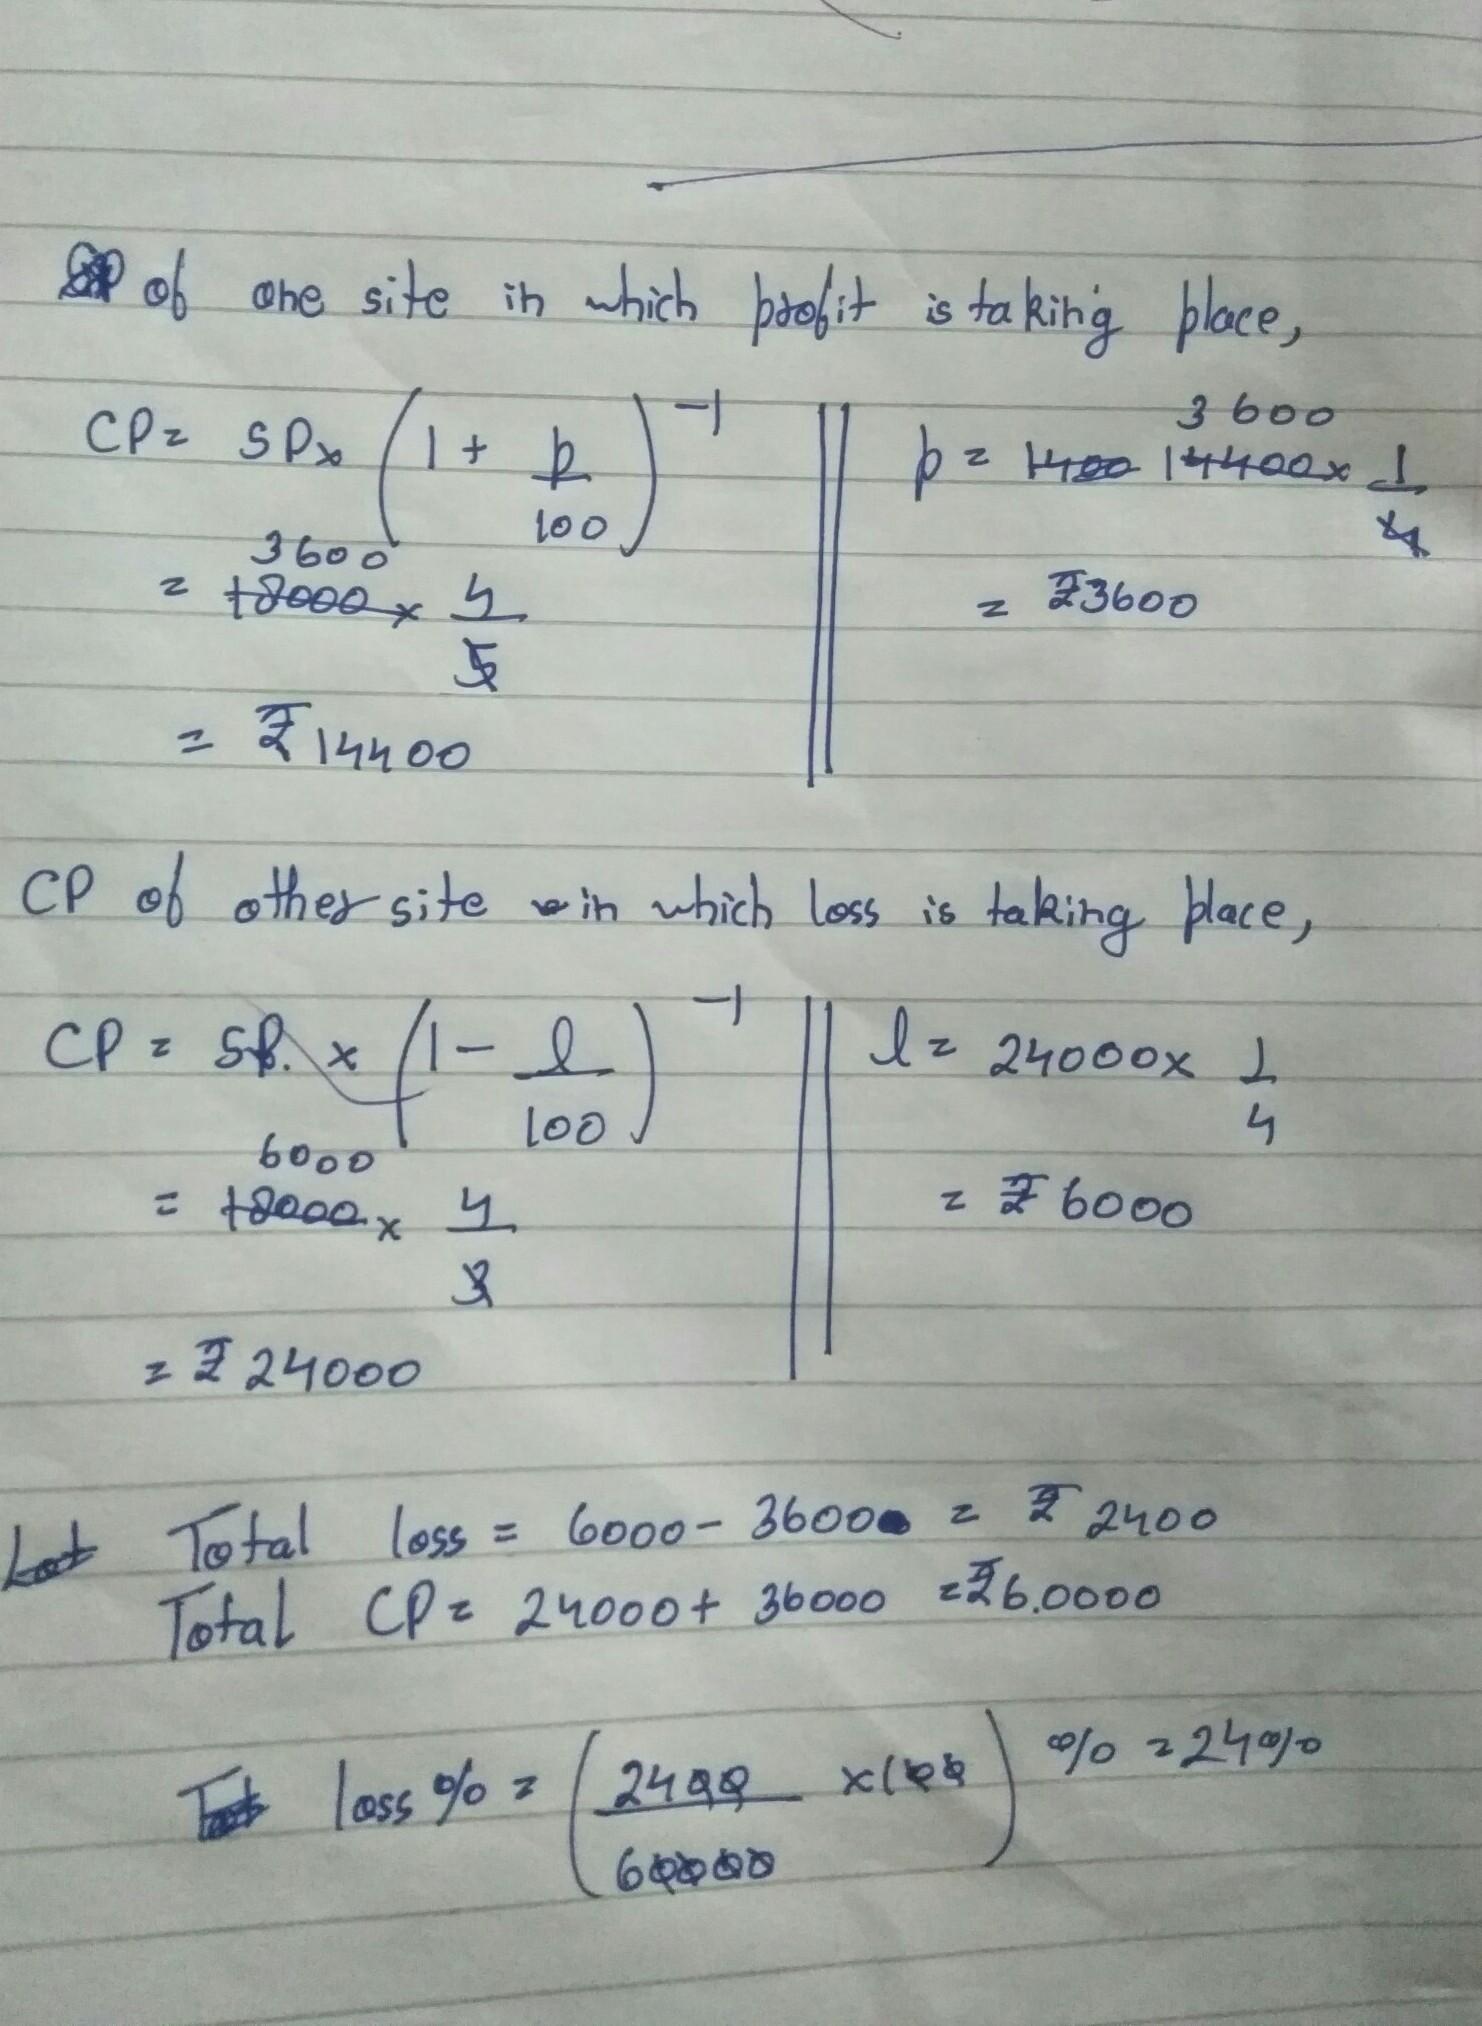 CP of one site in which profit is taking place,
CP = SP × (1 + p/100)⁻¹
p = 1400 14400 × 1/4
3600
3600
= 18000 × 4/5
= ₹3600
= ₹14400
CP of other site in which loss is taking place,
CP = SP. × (1 - l/100)⁻¹
l = 24000 × 1/4
6000
= 18000 × 4/3
= ₹6000
= ₹24000
Let Total loss = 6000 - 3600 = ₹2400
Total CP = 24000 + 36000 = ₹6.0000
Tot loss % = (2400/60000 × 100) % = 24%